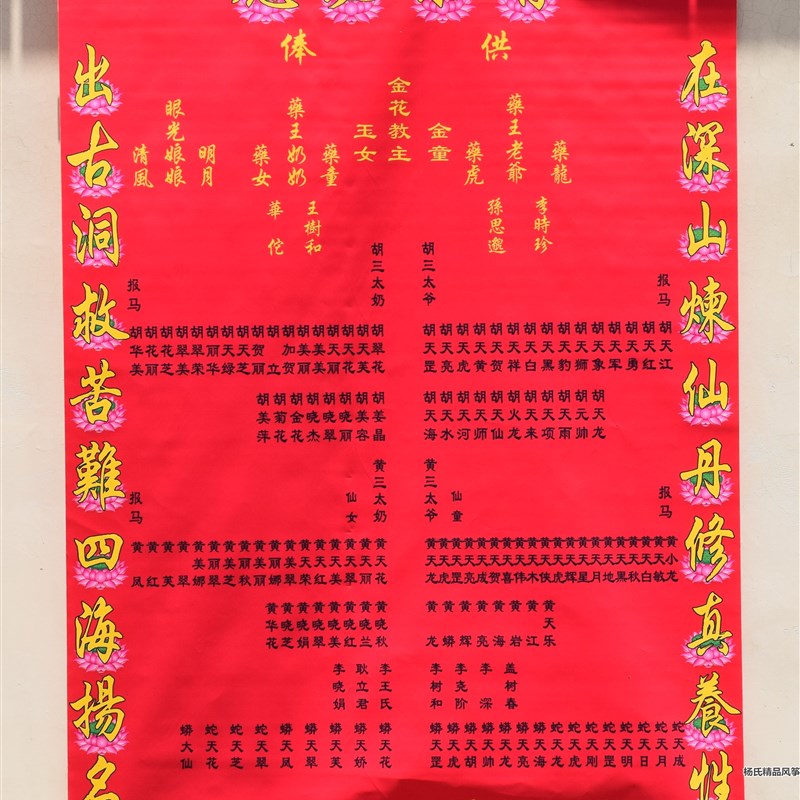 供俸
在深山煉仙丹修真養性
出古洞救苦難四海揚名
藥龍
藥王老爺
藥虎
金童
金花教主
玉女
藥童
藥王奶奶
藥女
明月
眼光娘娘
清風
李時珍
孫思邈
王樹和
華佗
报马
胡三太爷
胡三太奶
报马
胡天江
胡天红
胡天勇
胡天军
胡天象
胡天狮
胡天豹
胡天黑
胡天白
胡天祥
胡天贺
胡天黄
胡天虎
胡天亮
胡天罡
胡翠花
胡天芙
胡天花
胡天丽
胡美美
胡美丽
胡加贺
胡立
胡贺丽
胡天芝
胡天绿
胡丽华
胡翠荣
胡翠美
胡花芝
胡花丽
胡华美
胡天龙
胡元帅
胡天雨
胡天项
胡天来
胡火龙
胡天仙
胡天师
胡天河
胡天水
胡天海
胡姜晶
胡美容
胡晓丽
胡晓翠
胡晓杰
胡金花
胡菊花
胡美萍
报马
仙童
黄三太爷
黄三太奶
仙女
报马
黄小龙
黄天敏
黄天白
黄天秋
黄天黑
黄天地
黄天月
黄天星
黄天辉
黄天虎
黄天侠
黄天木
黄天伟
黄天喜
黄天贺
黄天成
黄天亮
黄天罡
黄天虎
黄天龙
黄天花
黄天丽
黄天翠
黄天美
黄天红
黄天荣
黄美翠
黄丽娜
黄美丽
黄丽秋
黄美芝
黄丽翠
黄美娜
黄翠
黄芙
黄红
黄风
黄天乐
黄江
黄岩
黄海
黄亮
黄辉
黄蟒
黄龙
黄晓秋
黄晓兰
黄晓红
黄晓美
黄晓翠
黄晓娟
黄晓芝
黄华花
盖树春
李深
李尧阶
李树和
李王氏
耿立君
李晓娟
蛇天成
蛇天月
蛇天日
蛇天明
蛇天罡
蛇天刚
蛇天虎
蛇天龙
蟒天海
蟒天亮
蟒天龙
蟒天帅
蟒天胡
蟒天虎
蟒天罡
蟒天花
蟒天娇
蟒天芙
蟒天凤
蛇天翠
蛇天芝
蛇天花
蟒大仙
杨氏精品风筝